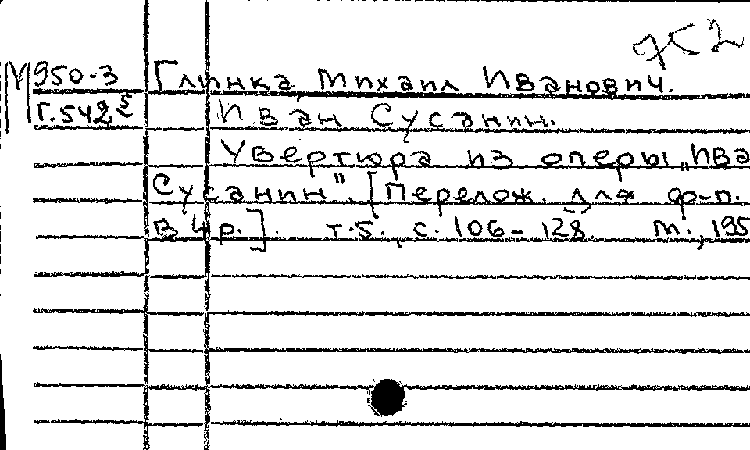 М950-3 Глинка, Михаил Иванович.
Г.542 Иван Сусанин.
Увертюра из оперы „Ива
Сусанин". [Перелож. для ф-п.
в 4 р.]. т.5, с. 106-128. М., 195